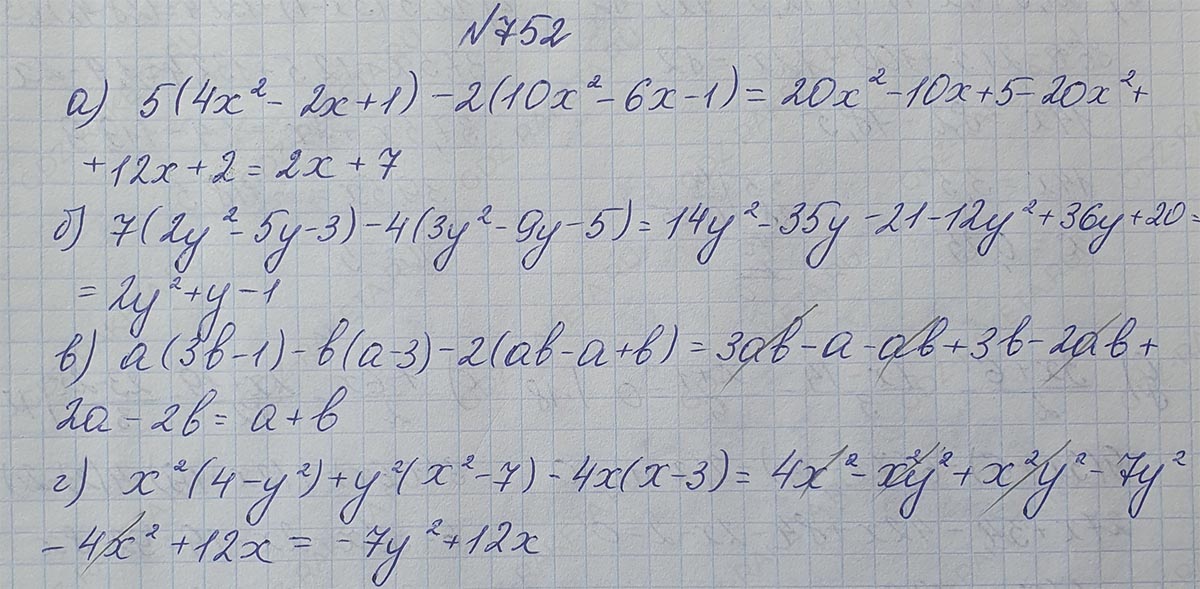 №752
а) 5(4x² - 2x + 1) - 2(10x² - 6x - 1) = 20x² - 10x + 5 - 20x² +
+ 12x + 2 = 2x + 7
б) 7(2y² - 5y - 3) - 4(3y² - 9y - 5) = 14y² - 35y - 21 - 12y² + 36y + 20 =
= 2y² + y - 1
в) a(3b - 1) - b(a - 3) - 2(ab - a + b) = 3ab - a - ab + 3b - 2ab +
2a - 2b = a + b
г) x²(4 - y²) + y²(x² - 7) - 4x(x - 3) = 4x² - x²y² + x²y² - 7y²
- 4x² + 12x = -7y² + 12x